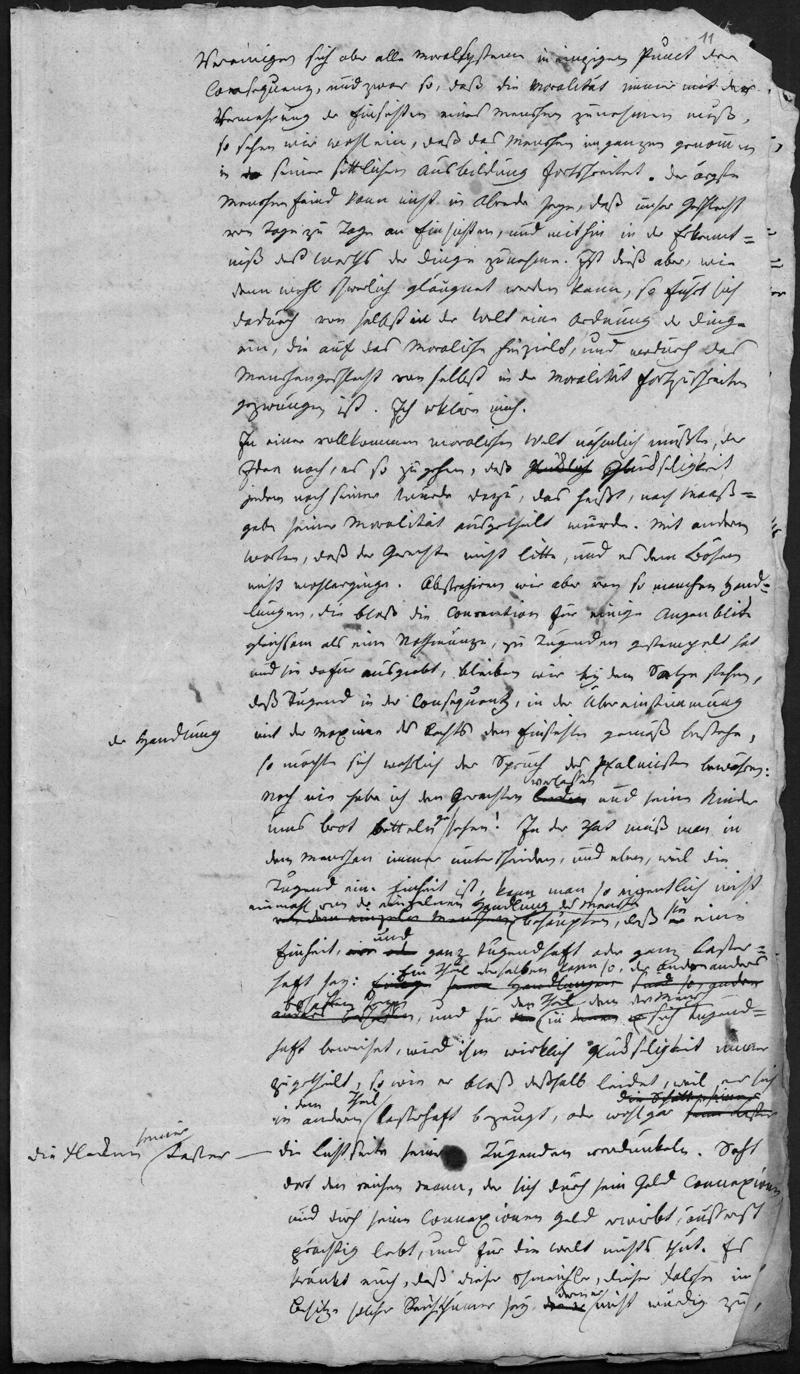 11
Vereinigen sich aber alle Moralsysteme in einzigem Punct der
Consequenz, und zwar so, daß die Moralität immer mit der
Vermehrung der Einsichten eines Menschen zunehmen muß,
so sehen wir wohl ein, daß das Menschen im ganzen genommen
in seiner sittlichen Ausbildung fortschreitet. Der ärgste
Menschenfeind kann nicht in Abrede seyn, daß unser Geschlecht
von Tage zu Tage an Einsichten, und mithin in der Erkennt=
niß des Werths der Dinge zunehme. Ist dieß aber, wie
denn wohl schwerlich gläugnet werden kann, so führt sich
dadurch von selbst in der Welt eine Ordnung der Dinge
ein, die auf das Moralische hinzielt, und wodurch das
Menschengeschlecht von selbst in der Moralität fortzuschreiten
gezwungen ist. Ich erkläre mich.
In einer vollkommen moralischen Welt nähmlich müßte, der
Idee nach, es so zugehen, daß Glückseligkeit
jedem nach seiner Würde dazu, das heißt, nach Maaß=
gabe seiner Moralität ausgetheilt würde. Mit andern
Worten, daß der Gerechte nicht litte, und es dem Bösen
nicht wohlerginge. Abstrahiren wir aber von so manchen Hand=
lungen, die bloß die Convention für einige Augenblicke
gleichsam als eine Nothmünze, zu Tugenden gestempelt hat
und sie dafür ausgiebt, bleiben wir bey dem Satze stehen,
daß Tugend in der Consequenz, in der Übereinstimmung
der Handlung
mit der Maxime des Rechts den Einsichten gemäß bestehe,
so möchte sich wohl der Spruch des Psalmisten bewähren:
verlassen
Noch nie habe ich den Gerechten und seine Kinder
ums Brot betteln sehen! In der That muß man in
dem Menschen immer unterscheiden, und eben, weil die
Tugend eine Einheit ist, kann man so eigentlich nicht
einmahl von der einzelnen Handlung des Menschen
behaupten, daß sie eine
und
Einheit, ganz tugendhaft oder ganz laster=
haft sey: Ein Theil derselben kann so, der andre anders
beschaffen seyn, und für den Theil in dem der Mensch sich tugend=
haft beweiset, wird ihm wirklich Glückseligkeit immer
zugetheilt, so wie er bloß deßhalb leidet, weil er sich
in dem andern Theil lasterhaft bezeugt, oder wohl gar
die Flecken seiner Laster —
die Lichtseite seiner Tugenden verdunkeln. Seht
dort den reichen Mann, der sich durch sein Geld Connexionen
und durch seine Connexionen Geld erwirbt, äusserst
prächtig lebt, und für die Welt nichts thut. Es
kränkt euch, daß dieser Schmeichler, dieser Falsche im
Besitze solcher Reichthümer sey, deren er nicht würdig zu,